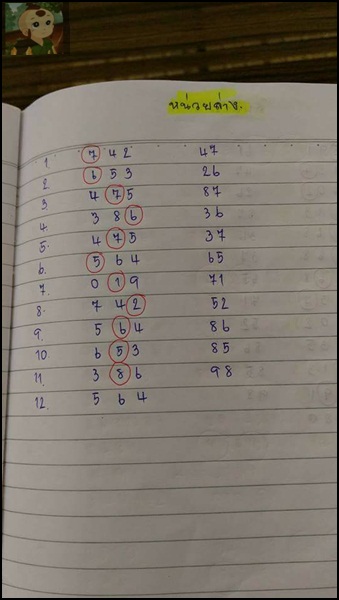 หน่วยล่าง.
1. 7 4 2 47
2. 6 5 3 26
3. 4 7 5 87
4. 3 8 6 36
5. 4 7 5 37
6. 5 6 4 65
7. 0 1 9 71
8. 7 4 2 52
9. 5 6 4 86
10. 6 5 3 85
11. 3 8 6 98
12. 5 6 4